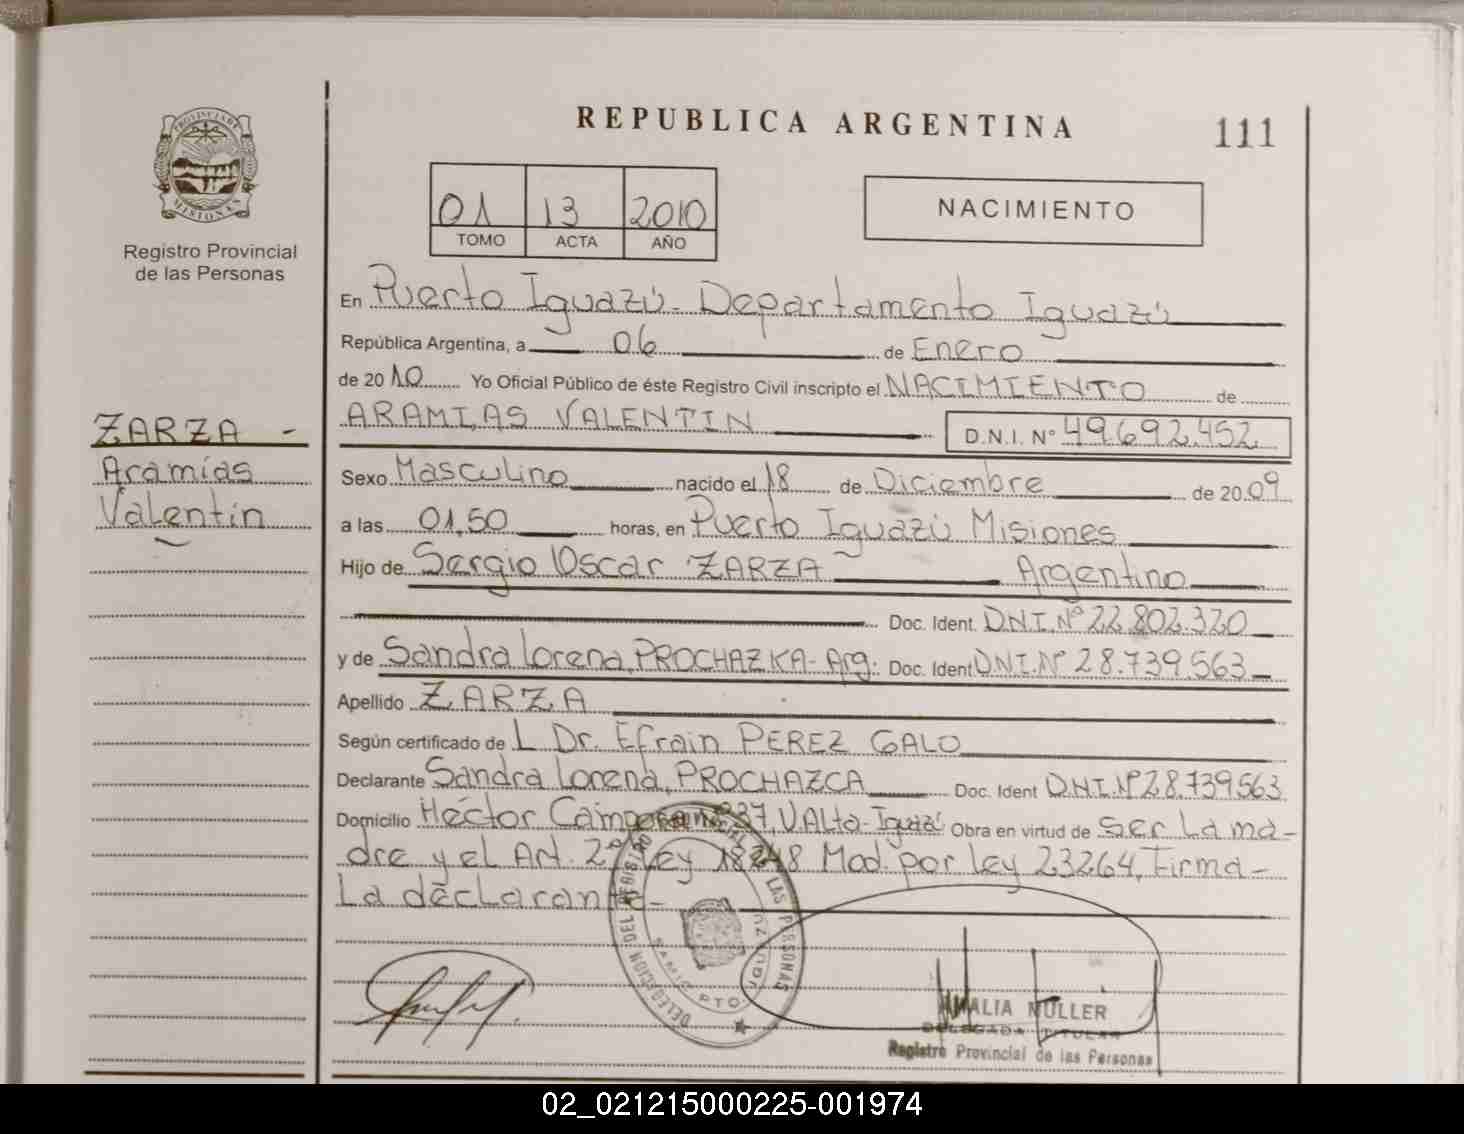 PROVINCIA DE
MISIONES
Registro Provincial
de las Personas
ZARZA -
Aramías
Valentín
REPUBLICA ARGENTINA
111
01 13 2010
TOMO ACTA AÑO
NACIMIENTO
En Puerto Iguazú - Departamento Iguazú
República Argentina, a 06 de Enero
de 2010 Yo Oficial Público de éste Registro Civil inscripto el NACIMIENTO de
ARAMIAS VALENTIN D.N.I. N° 49.692.452
Sexo Masculino nacido el 18 de Diciembre de 2009
a las 01,50 horas, en Puerto Iguazú Misiones
Hijo de Sergio Oscar ZARZA Argentino
Doc. Ident. D.N.I. N° 22.802.320
y de Sandra Lorena, PROCHAZKA - Arg. Doc. Ident D.N.I. N° 28.739.563
Apellido ZARZA
Según certificado de L Dr. Efrain PEREZ GALO
Declarante Sandra Lorena, PROCHAZCA Doc. Ident D.N.I. N° 28.739.563
Domicilio Héctor 337, V. Alta - Iguazú Obra en virtud de ser La ma-
dre y el Art. 2° Ley 18248 Mod. por Ley 23264, Firma -
La declarante -
DELEGACION DEL REGISTRO LAS PERSONAS
PTO. IGUAZU
AMALIA MULLER
DELEGADA TITULAR
Registro Provincial de las Personas
02_021215000225-001974